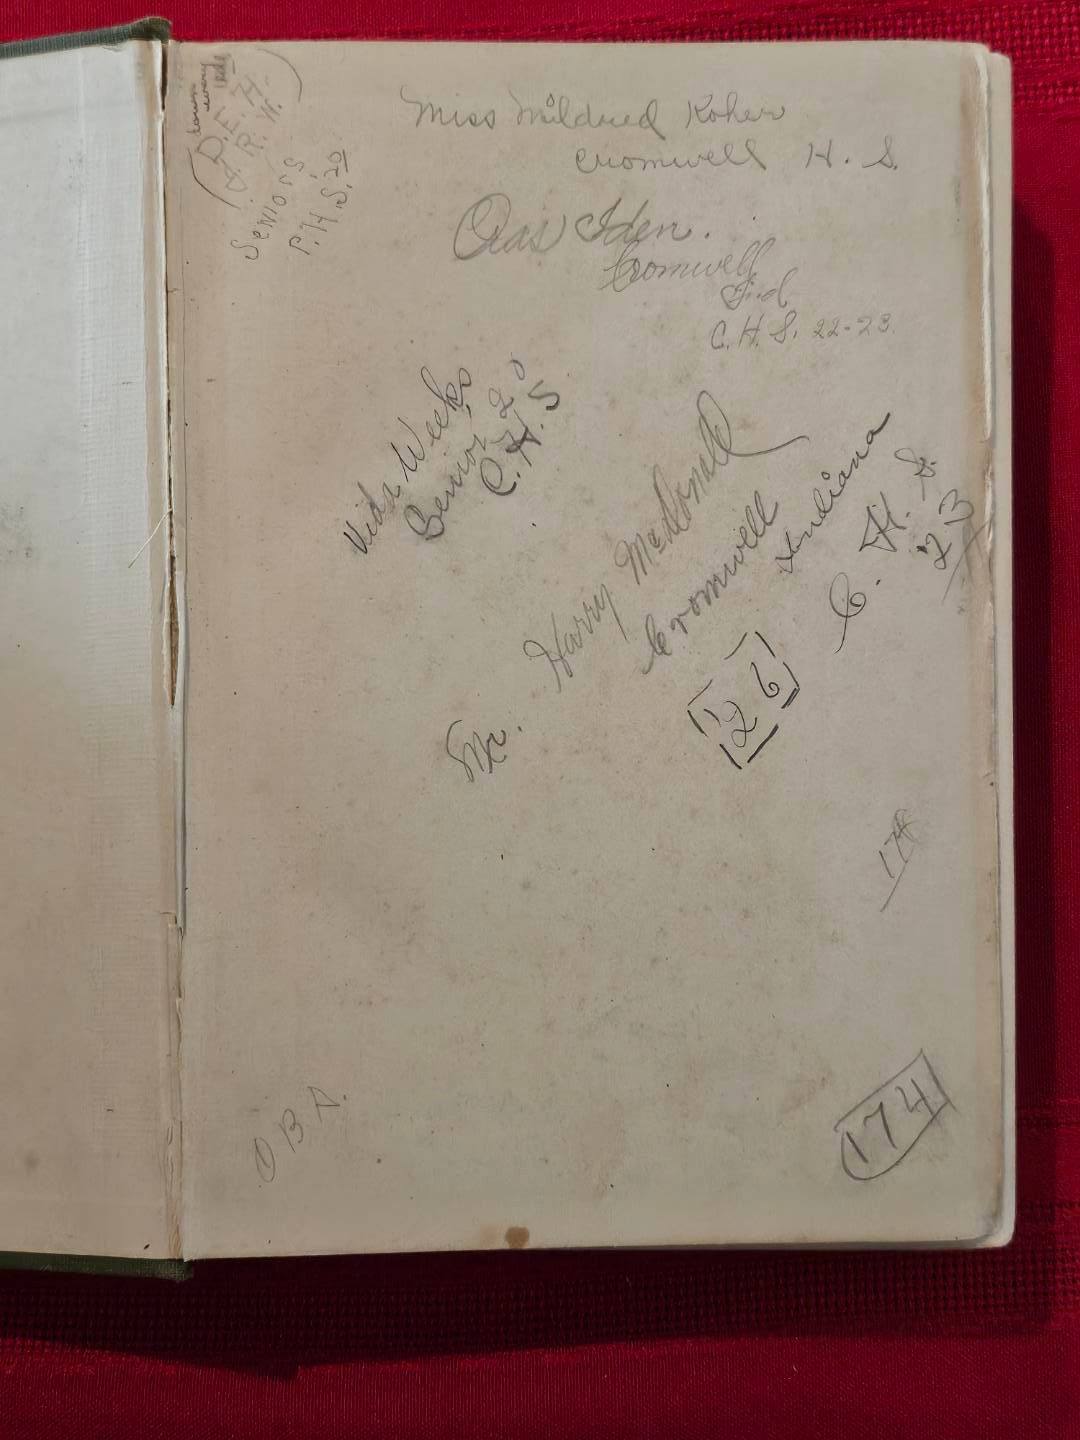 D.E.H.
& R.W.
Seniors
P.H.S. 20
Miss Mildred Koher
Cromwell H. S.
Iden.
Cromwell
Ind
C. H. S. 22-23.
Vida Weeks
Senior 20
C. H. S
Mr. Harry McDonald
Cromwell
Indiana
C. H. S.
'23
'26
174
O B A.
174